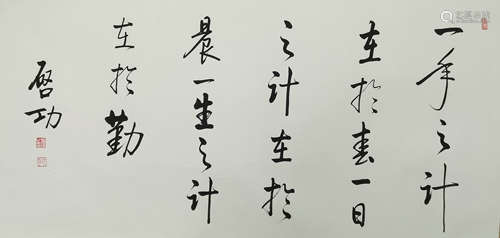 一年之计
在於春一日
之计在於
晨一生之计
在於勤
启功